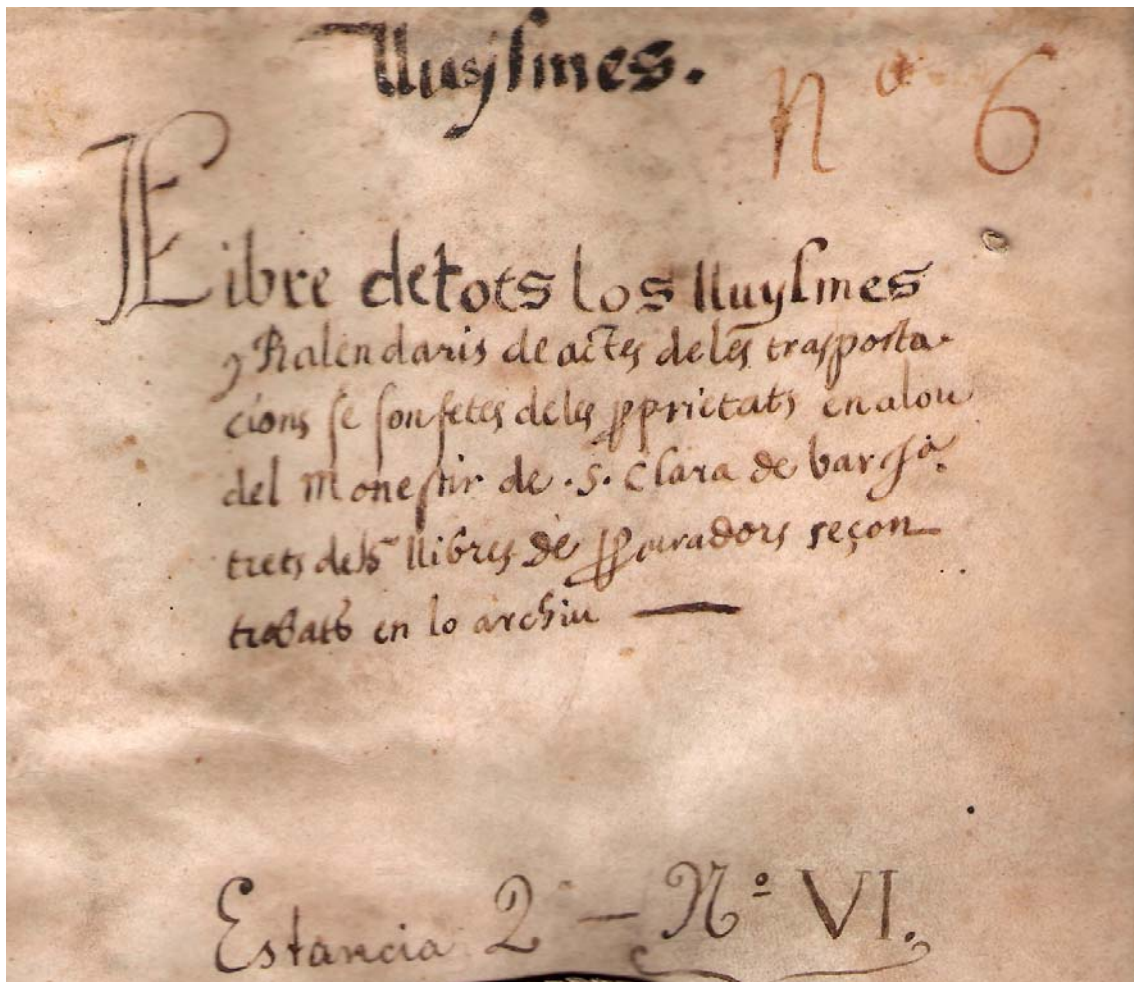 lluysmes.
nº 6
Libre de tots los lluysmes
y Kalendaris de actes de les trasporta-
cions se son fetes deles pprietats en alou
del Monestir de .S. Clara de barª.
trets dels llibres de pcuradors seçon
trobats en lo archiu —
Estancia 2 — Nº VI.